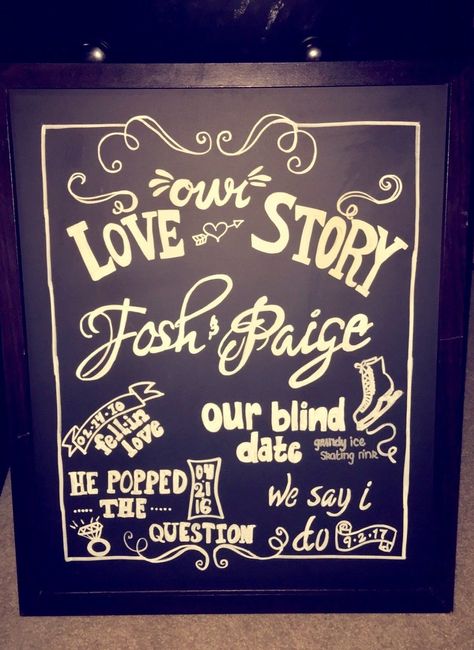 our
LOVE STORY
Josh & Paige
02.14.10
fell in
love
our blind
date
grundy ice
skating rink
HE POPPED
THE
QUESTION
04
21
16
we say i
do
9.2.17